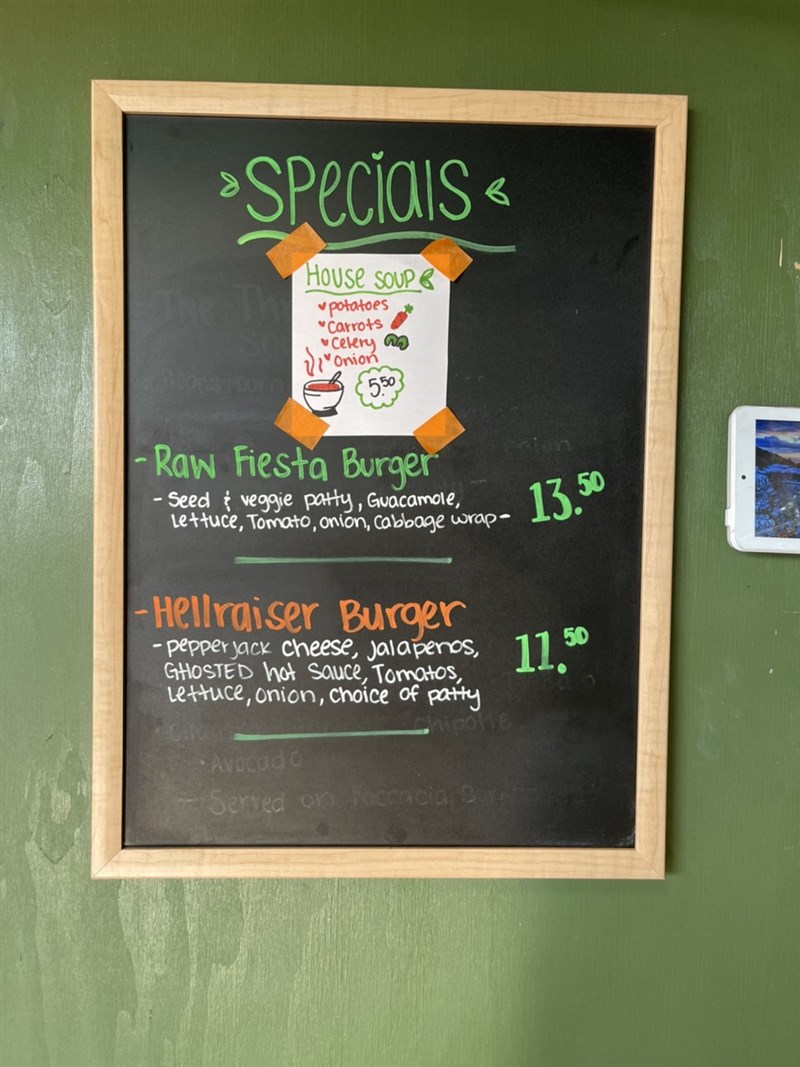 Specials
House Soup
potatoes
Carrots
Celery
Onion
5.50
- Raw Fiesta Burger
- Seed & veggie patty, Guacamole,
Lettuce, Tomato, onion, cabbage wrap -
13.50
- Hellraiser Burger
- pepperjack cheese, jalapenos,
GHOSTED hot sauce, Tomatos,
Lettuce, onion, choice of patty
11.50
chipotle
Avocado
Served on Foccacia